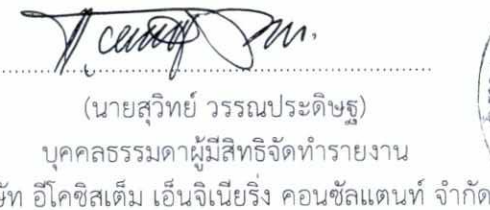 (นายสุวิทย์ วรรณประดิษฐ)
บุคคลธรรมดาผู้มีสิทธิจัดทำรายงาน
อีโคซิสเต็ม เอ็นจิเนียริ่ง คอนซัลแตนท์ จำกัด